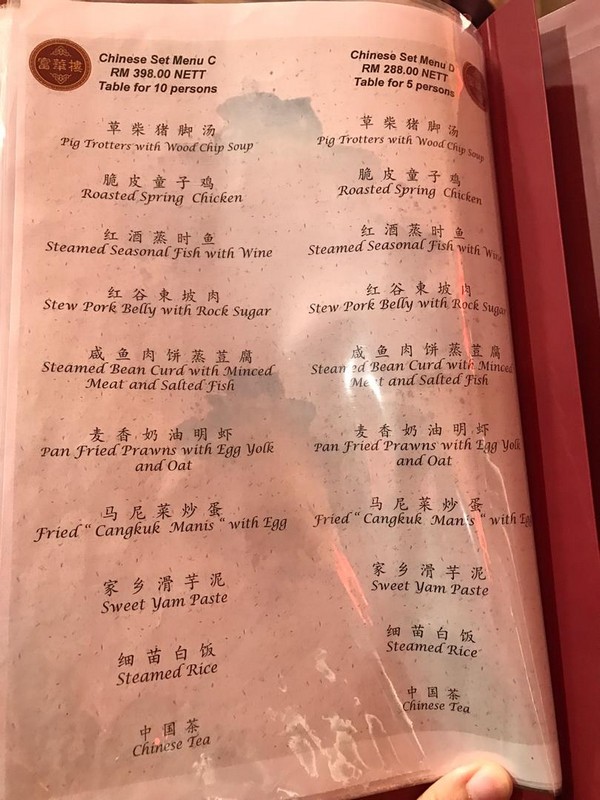 富華樓
Chinese Set Menu C
RM 398.00 NETT
Table for 10 persons
草柴猪脚汤
Pig Trotters with Wood Chip Soup
脆皮童子鸡
Roasted Spring Chicken
红酒蒸时鱼
Steamed Seasonal Fish with Wine
红谷東坡肉
Stew Pork Belly with Rock Sugar
咸鱼肉饼蒸荳腐
Steamed Bean Curd with Minced
Meat and Salted Fish
麦香奶油明虾
Pan Fried Prawns with Egg Yolk
and Oat
马尼菜炒蛋
Fried “ Cangkuk Manis “ with Egg
家乡滑芋泥
Sweet Yam Paste
细苗白饭
Steamed Rice
中国茶
Chinese Tea
Chinese Set Menu D
RM 288.00 NETT
Table for 5 persons
草柴猪脚汤
Pig Trotters with Wood Chip Soup
脆皮童子鸡
Roasted Spring Chicken
红酒蒸时鱼
Steamed Seasonal Fish with Wine
红谷東坡肉
Stew Pork Belly with Rock Sugar
咸鱼肉饼蒸荳腐
Steamed Bean Curd with Minced
Meat and Salted Fish
麦香奶油明虾
Pan Fried Prawns with Egg Yolk
and Oat
马尼菜炒蛋
Fried “ Cangkuk Manis “ with Egg
家乡滑芋泥
Sweet Yam Paste
细苗白饭
Steamed Rice
中国茶
Chinese Tea